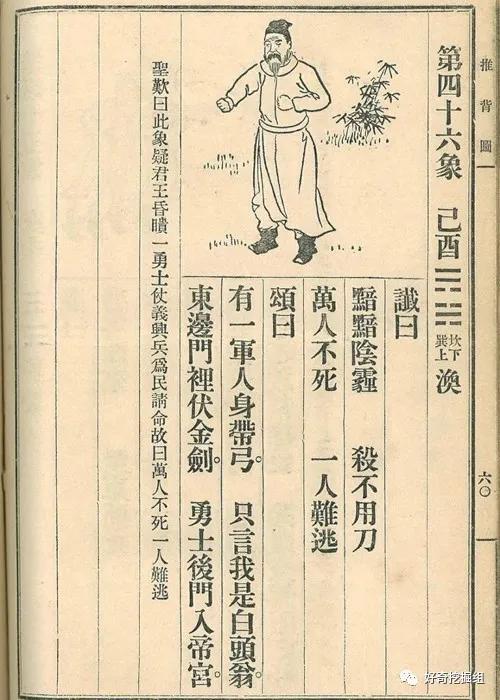 推背圖
六〇
第四十六象 己酉 坎下巽上 渙
讖曰
黯黯陰霾 殺不用刀
萬人不死 一人難逃
頌曰
有一軍人身帶弓。 只言我是白頭翁。
東邊門裡伏金劍。 勇士後門入帝宮。
聖歎曰此象疑君王昏瞶一勇士仗義興兵爲民請命故曰萬人不死一人難逃
好奇挖掘组